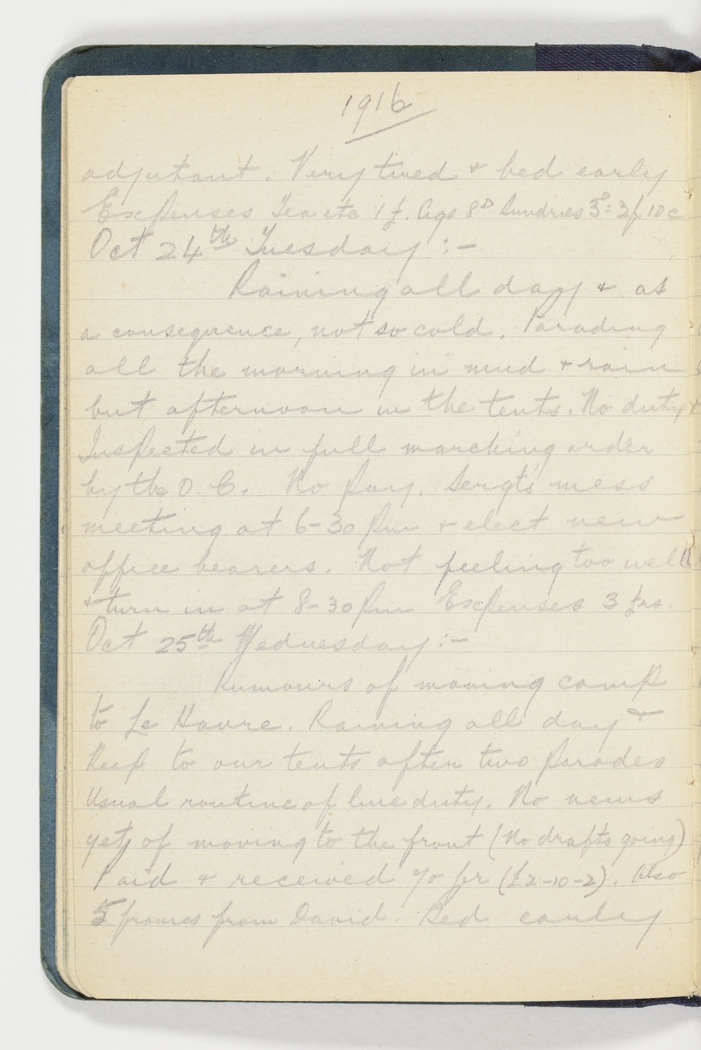 1916
adjutant. Very tired + bed early
Expenses Tea etc 1 f. Cigs 8D Sundries 3D = 2f 10c
Oct 24th Tuesday :-
Raining all day & as
a consequence, not so cold. Parading
all the morning in mud + rain
but afternoon in the tents. No duty +
Inspected in full marching order
by the O. C. No pay. Sergts mess
meeting at 6-30 pm + elect new
office bearers. Not feeling too well
+ turn in at 8-30 pm Expenses 3 frs.
Oct 25th Wednesday :-
Rumours of moving camp
to Le Havre. Raining all day +
Keep to our tents after two parades
Usual routine of line duty. No news
yet of moving to the front (No drafts going)
Paid + received 70 fr (£2-10-2). Also
5 francs from David. Bed early